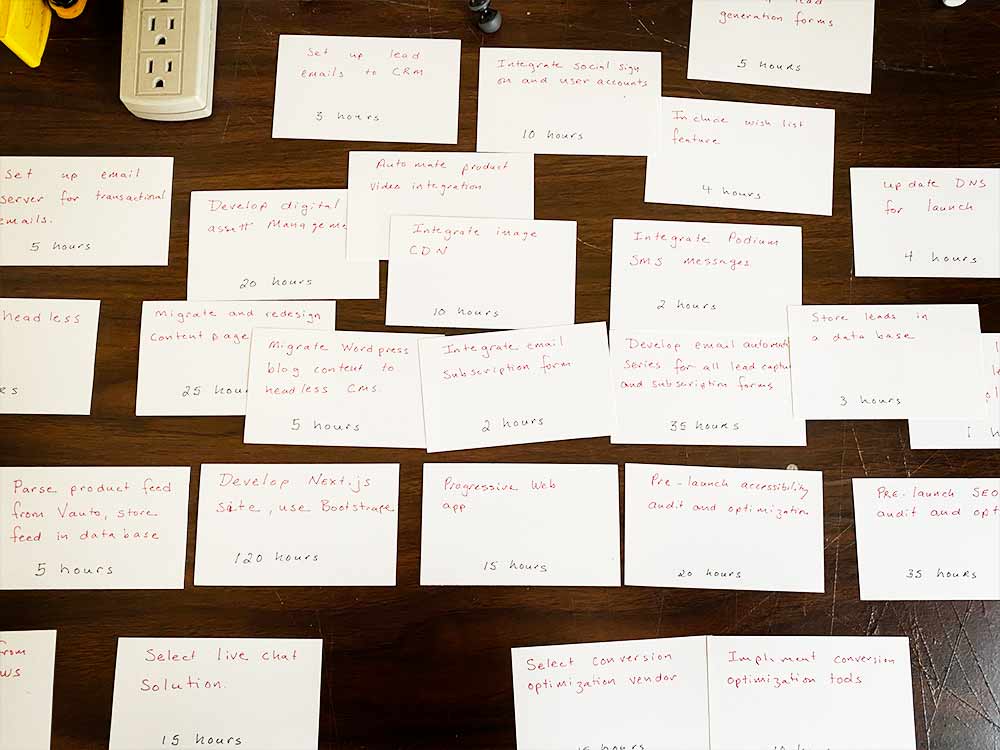 generation forms
5 hours
Set up lead
emails to CRM
3 hours
Integrate social sign
on and user accounts
10 hours
Include wish list
feature
4 hours
Set up email
server for transactional
emails.
5 hours
Develop digital
assett Manageme
20 hours
Auto mate product
video integration
Integrate image
CDN
10 hours
Integrate Podium
SMS messages
2 hours
update DNS
for launch
4 hours
headless
Migrate and redesign
content page
25 hou
Migrate Wordpress
blog content to
headless CMS.
5 hours
Integrate email
Subscription form
2 hours
Develop email automati
series for all lead captu
and subscription forms
35 hours
Store leads in
a data base
3 hours
Parse product feed
from Vauto, store
feed in data base
5 hours
Develop Next.js
site, use Bootstrap
120 hours
Progressive Web
app
15 hours
Pre-launch accessibility
audit and optimization
20 hours
PRE-launch SEO
audit and opt
35 hours
from
WS
Select live chat
Solution.
15 hours
Select conversion
optimization vendor
Implment conversion
optimization tools